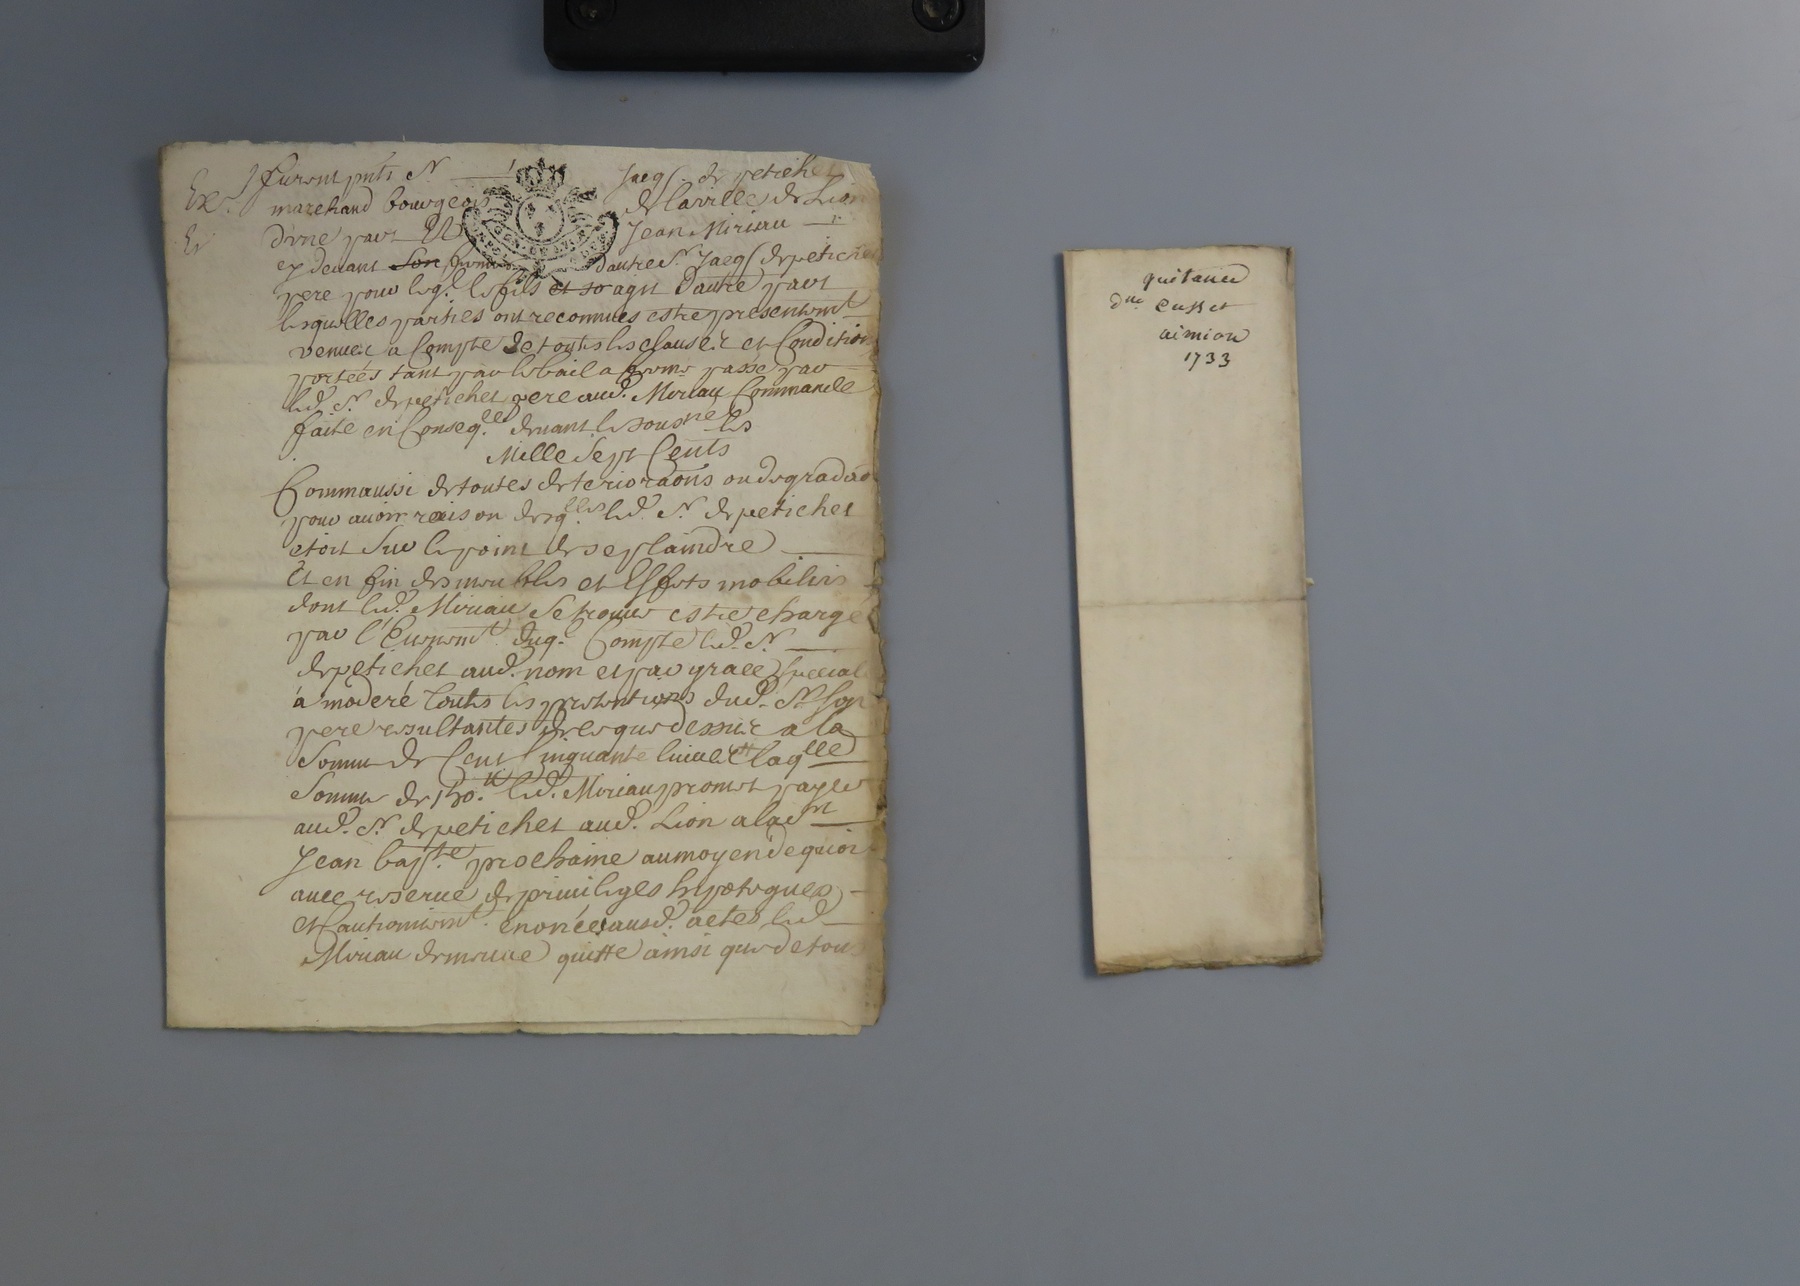 Exr. furent pnts Sr. Jacq. de petichet
marchand bourgeois de la ville de Lion
Et d'une part Et Jean Moriau
cy devant son fermier d'autre Sr. Jacq. de petichet
pere pour leql. le fils et so agit d'autre part
lesquelles parties ont reconnues estre presentemt
venues a Compte de toutes les clauses et Condition
portées tant par le bail a ferme passé par
led. Sr. de petichet pere aud. Moriau Commande
faite en Conseq.ce devant le sousne les
Mille Sept Cents
Comm aussi de toutes deterioraons ou degradao
pour avoir raison desq.lles led. Sr. de petichet
etoit sur le point de se plaindre
Et en fin des meubles et Effets mobiliers
dont led. Moriau se trouve estre chargé
par l'Evenemt duql. Compte led. Sr.
de petichet aud. nom et par grace speciale
a moderé toutes les pretentions dud. Sr. son
pere resultantes de ce que dessus a la
Somme de Cent Cinquante livres laqlle
Somme de 150.lt led. Moriau promet payer
aud. Sr. de petichet aud. Lion a la St
Jean bapste prochaine au moyen de quoi
avec reserve de privileges hypoteques
et Cautionnemt enoncés ausd. actes led.
Moriau demeure quitte ainsi que de tous
quitance
due Cusset
aimion
1733